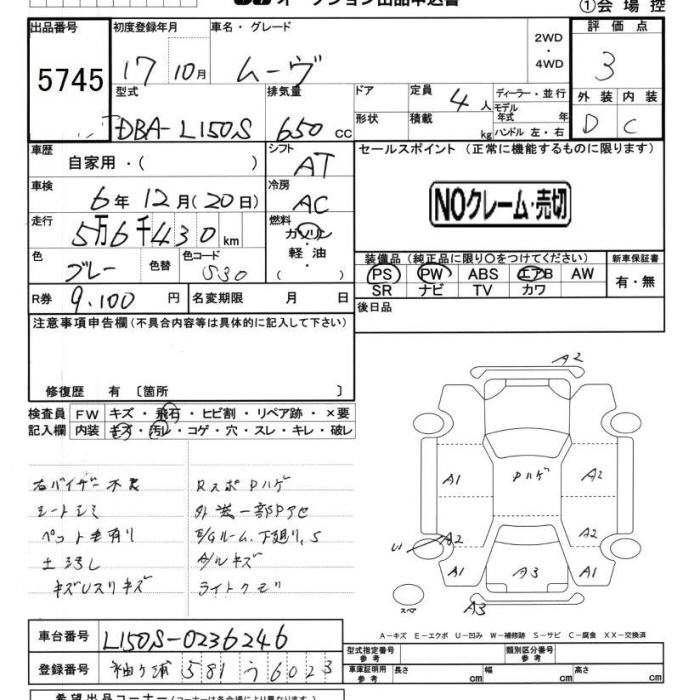 オークション出品申込書
①会場控
出品番号
5745
初度登録年月
17年10月
車名・グレード
ムーヴ
2WD
・
4WD
評価点
3
型式
DBA-L150S
排気量
650 CC
ドア
形状
定員
4人
積載
kg
ディーラー・並行
モデル年式 年
ハンドル 左・右
外装 内装
D C
車歴
自家用・( )
シフト
AT
セールスポイント (正常に機能するものに限ります)
NOクレーム・売切
車検
6年12月(20日)
冷房
AC
走行
5万6千430km
燃料
ガソリン
・
軽・油
( )
色
グレー
色替
色コード
S30
装備品 (純正品に限り○をつけてください)
PS PW ABS エアB AW
SR ナビ TV カワ
新車保証書
有・無
R券 9,100円
名変期限 月 日
後日品
注意事項申告欄(不具合内容等は具体的に記入して下さい)
修復歴 有 〔箇所 〕
検査員
記入欄
FW キズ・飛石・ヒビ割・リペア跡・×要
内装 キズ・汚レ・コゲ・穴・スレ・キレ・破レ
右バイザー不良
シートシミ
ペット毛有り
土 汚し
キズUスリキズ
RスポPハゲ
外装一部Pアセ
E/Gルーム、下廻り、S
A/Wキズ
ライトクモリ
A2
A1 Pハゲ A2
U A2 A2
A1 A3 A1
スペア
A3
A-キズ E-エクボ U-凹み W-補修跡 S-サビ C-腐食 XX-交換済
車台番号
L150S-0236246
登録番号
袖ヶ浦 581 う 6023
型式指定番号
参考
類別区分番号
参考
車庫証明用
参考
長さ cm
幅 cm
高さ cm
希望出品コーナー(コーナーは各会場により異なります)